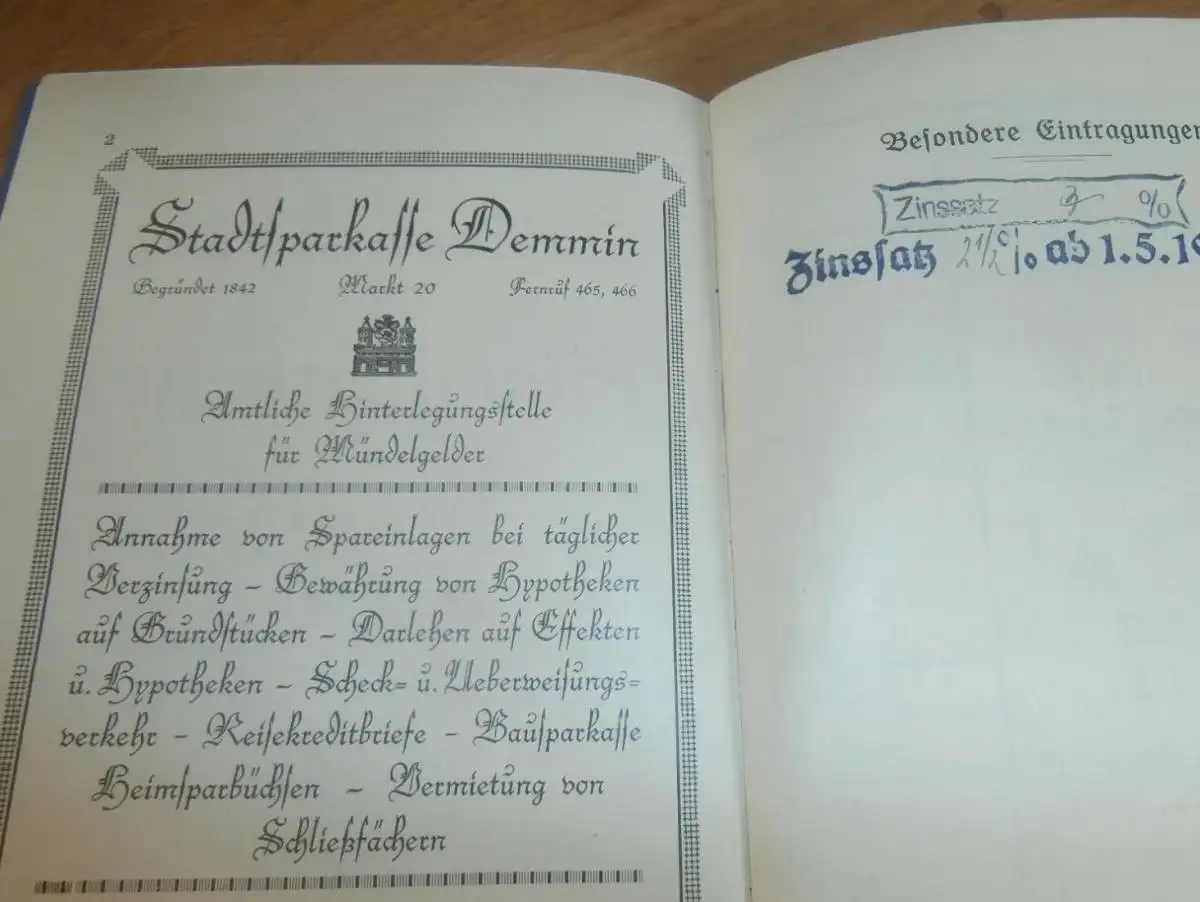 2
Stadtsparkasse Demmin
Begründet 1842 Markt 20 Fernruf 465, 466
Amtliche Hinterlegungsstelle
für Mündelgelder
Annahme von Spareinlagen bei täglicher
Verzinsung – Gewährung von Hypotheken
auf Grundstücken – Darlehen auf Effekten
u. Hypotheken – Scheck= u. Ueberweisungs=
verkehr – Reisekreditbriefe – Bausparkasse
Heimsparbüchsen – Vermietung von
Schließfächern
Besondere Eintragungen
Zinssatz 3 %
Zinssatz 2 1/2 % ab 1.5.19